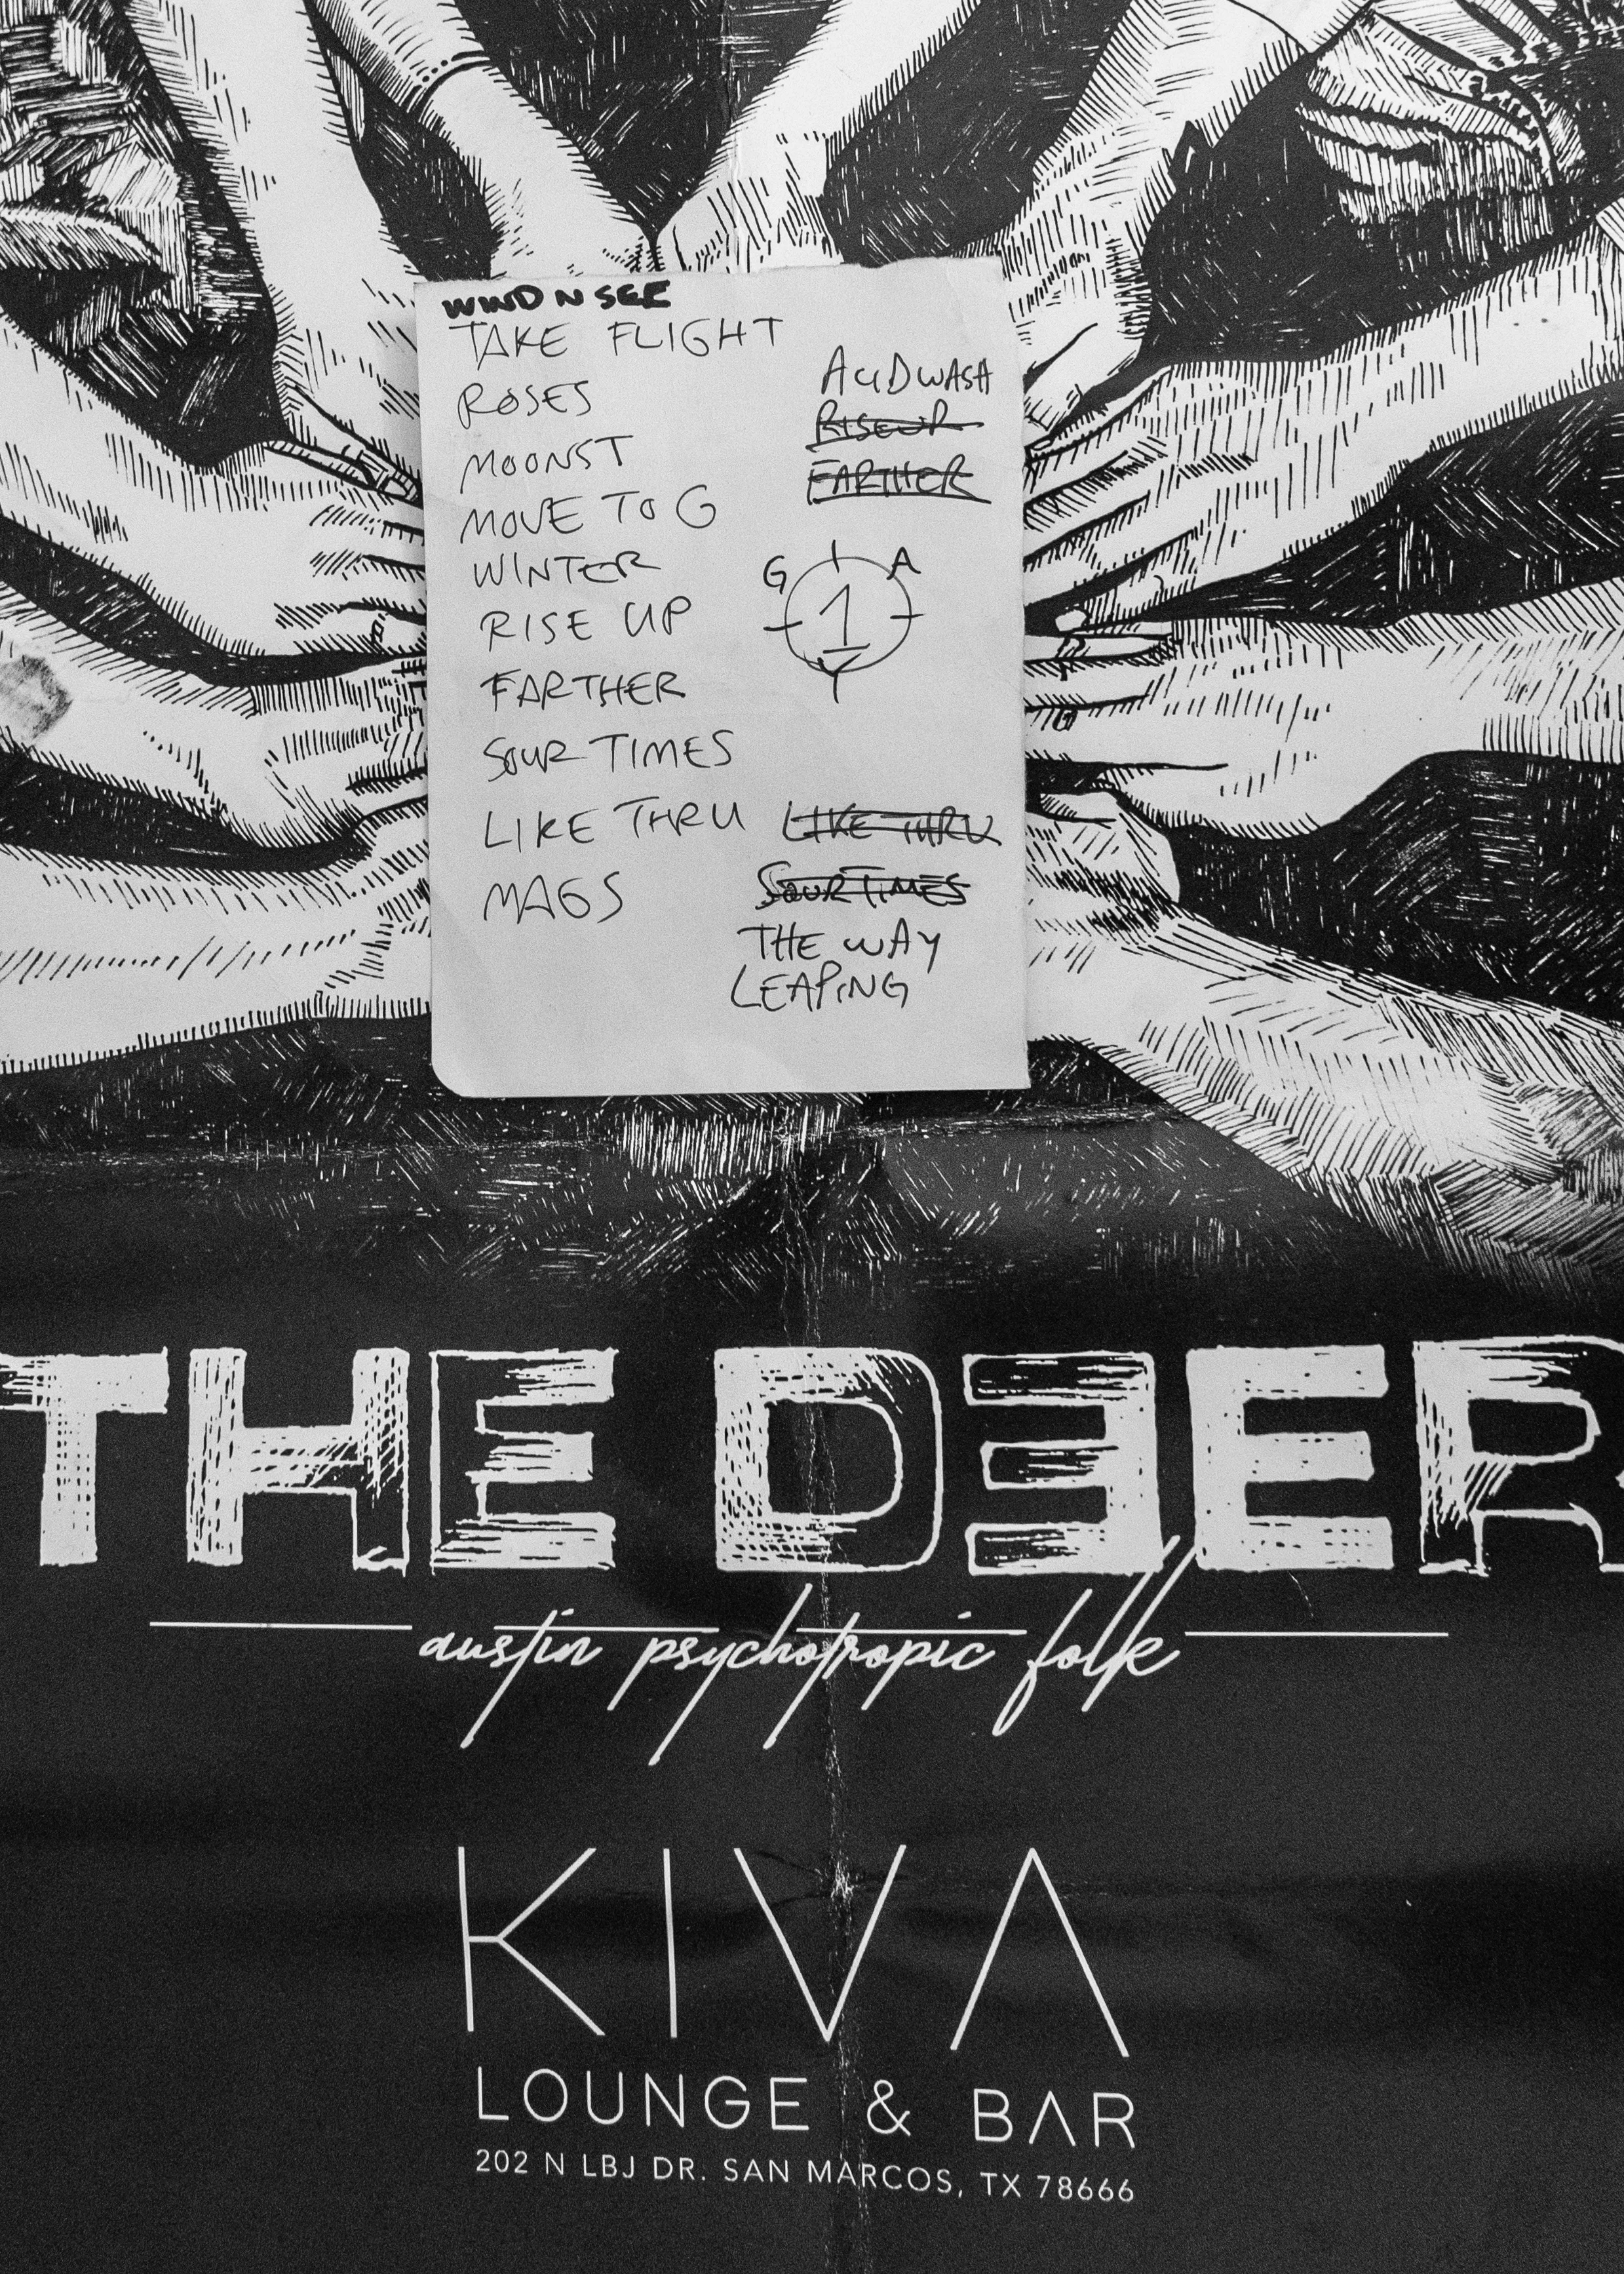 WIND N SEE
TAKE FLIGHT
ROSES
MOONST
MOVE TO G
WINTER
RISE UP
FARTHER
SOUR TIMES
LIKE THRU
MAGS
ACIDWASH
RISEUP
FARTHER
G A
1
Y
LIKE THRU
SOUR TIMES
THE WAY
LEAPING
THE DEER
austin psychotropic folk
KIVA
LOUNGE & BAR
202 N LBJ DR. SAN MARCOS, TX 78666